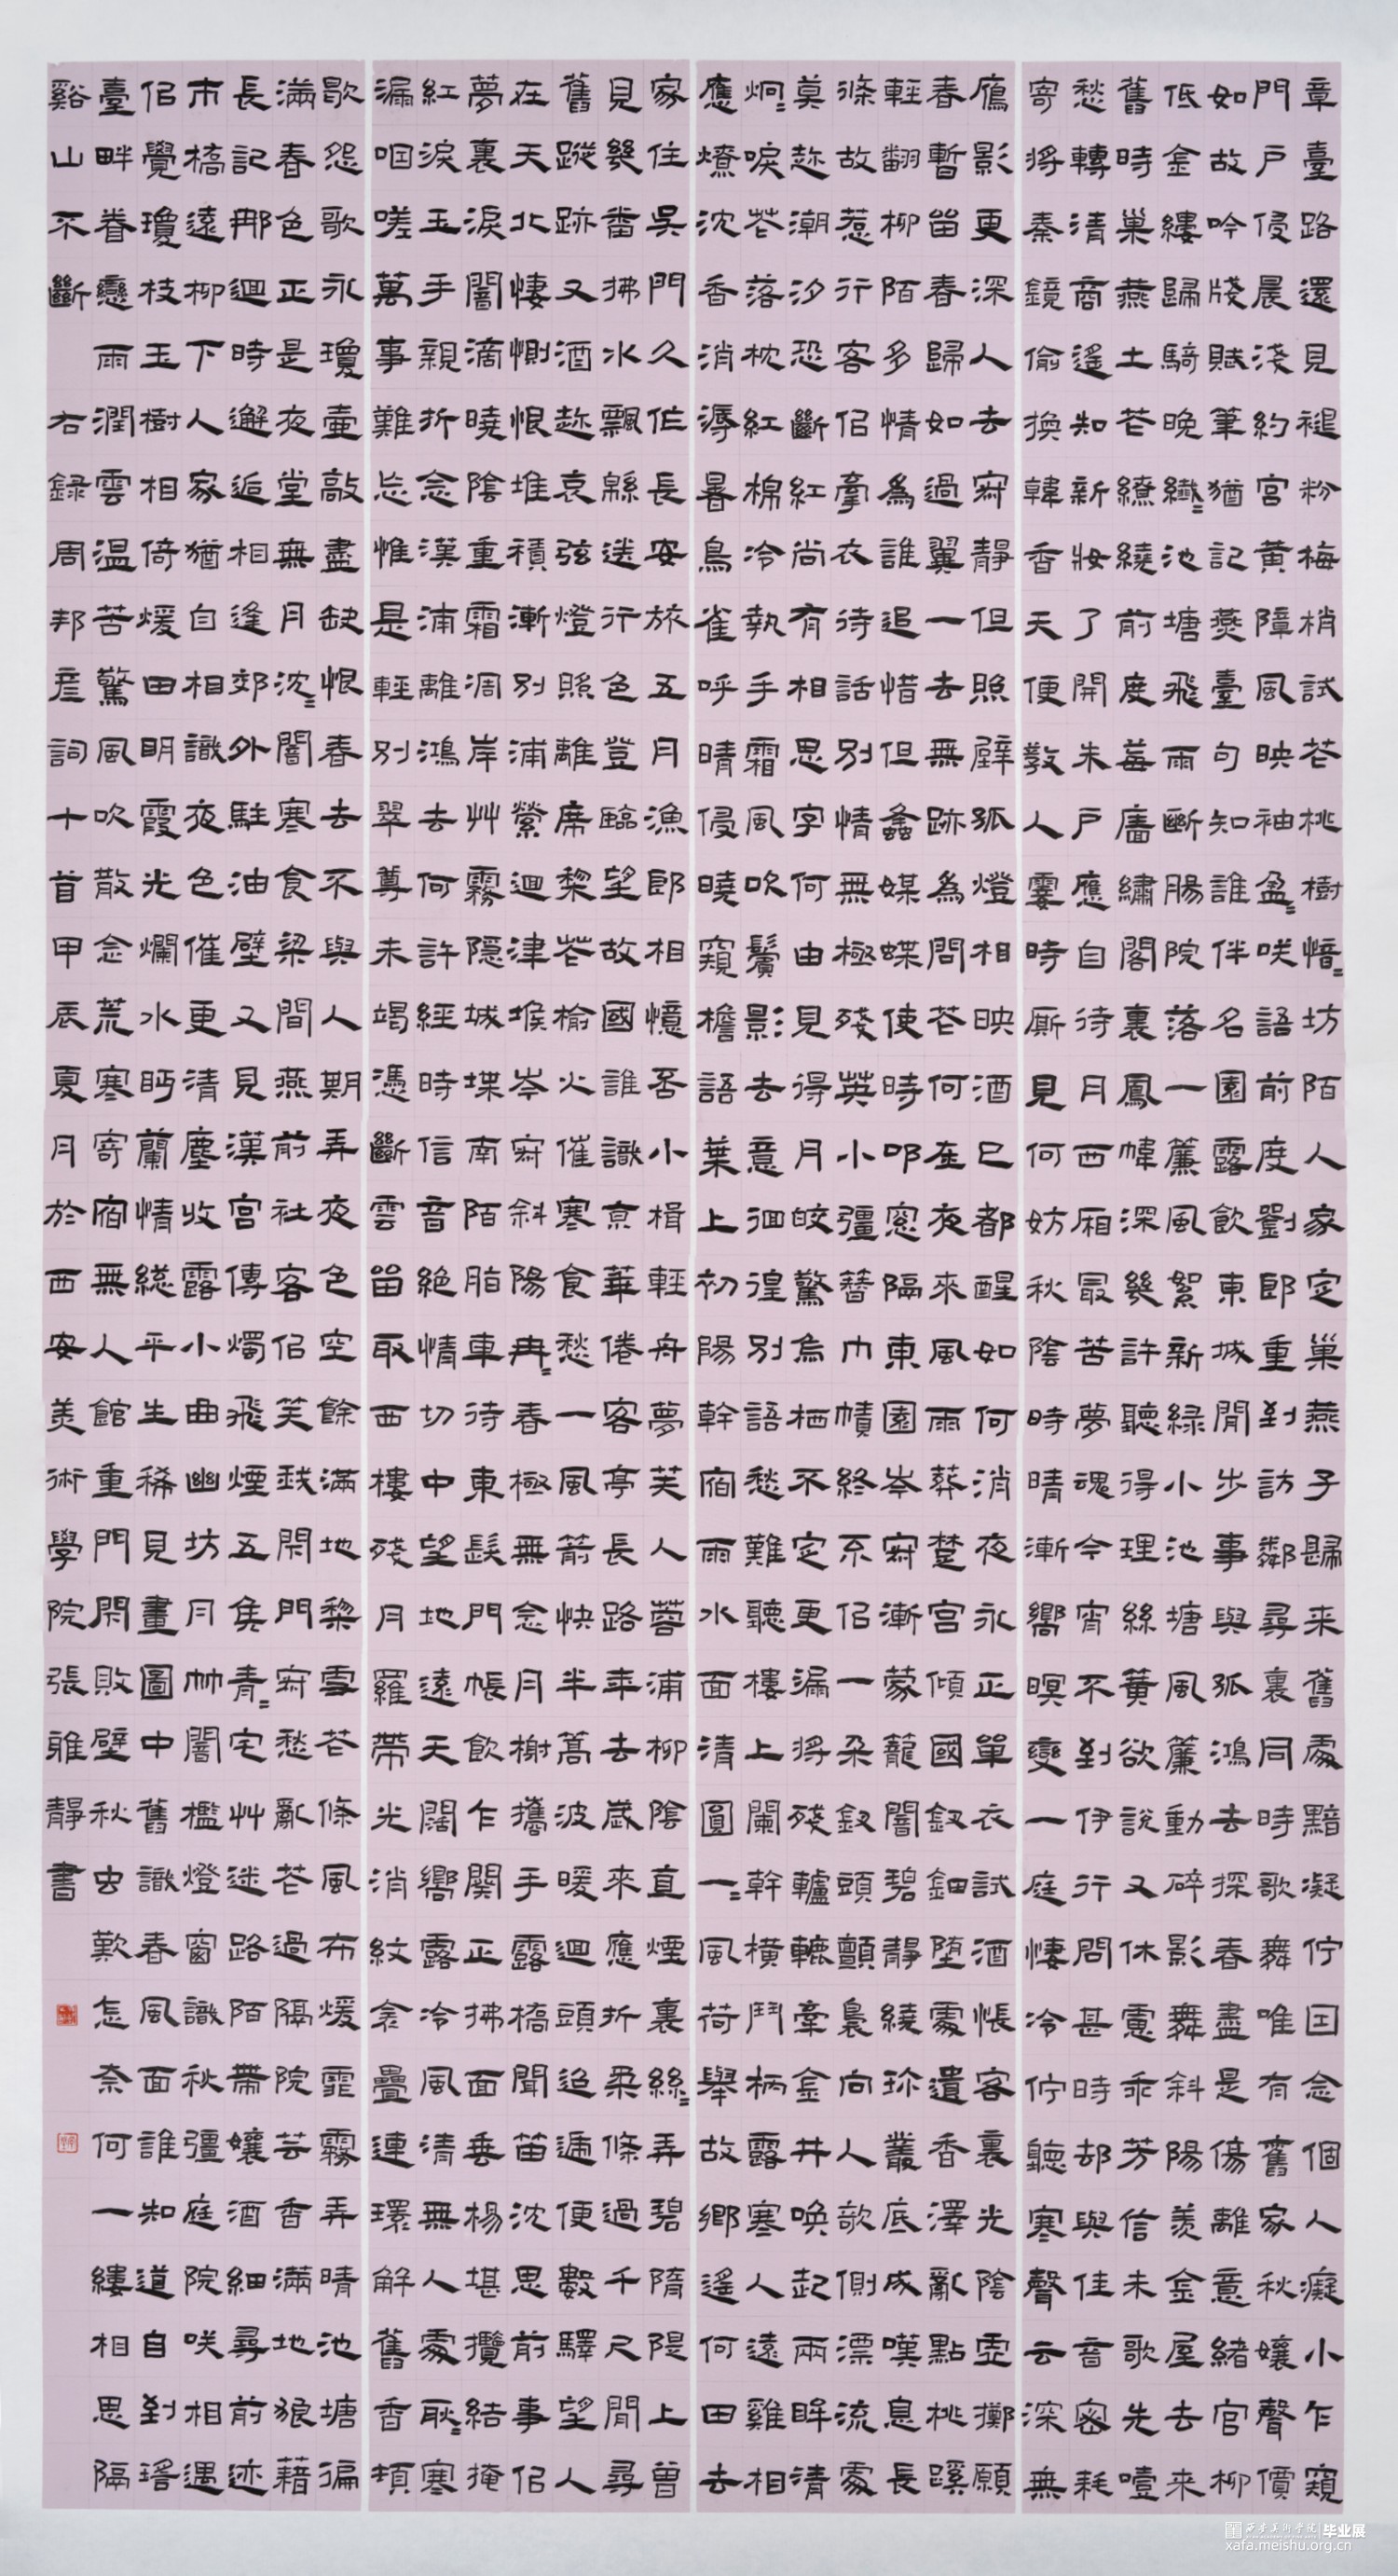 章臺路還見褪粉梅梢試花桃樹愔愔坊陌人家定巢燕子歸来舊處黯凝佇因念個人癡小乍窺
門戶侵晨淺約宮黃障風映袖盈盈笑語前度劉郎重到訪鄰尋裏同時歌舞唯有舊家秋孃聲價
如故吟牋賦筆猶記燕臺句知誰伴名園露飲東城閒步事與孤鴻去探春盡是傷離意緒官柳
低金縷歸騎晚纖纖池塘飛雨斷腸院落一簾風絮新緑小池塘風簾動碎影舞斜陽羨金屋去来
舊時巢燕土花繚繞前度莓廧繡閣裏鳳幃深幾許聽得理絲簧欲說又休慮乖芳信未歌先噎
愁轉清商遙知新妝了開朱戶應自待月西廂最苦夢魂今宵不到伊行問甚時却與佳音密耗
寄將秦鏡偷換韓香天便教人霎時厮見何妨秋陰時晴漸嚮暝變一庭悽冷佇聽寒聲云深無
鴈影更深人去寂靜但照壁孤燈相映酒已都醒如何消夜永正單衣試酒悵客裏光陰虛擲願
春暫留春歸如過翼一去無跡為問花何在夜來風雨葬楚宮傾國釵鈿堕處遺香澤亂點桃蹊
輕翻柳陌多情為誰追惜但蜂媒蝶使時叩窗隔東園岑寂漸蒙籠闇碧靜繞珍叢底成嘆息長
條故惹行客似牽衣待話別情無極殘英小彊簪巾幘終不似一朵釵頭顫裊向人欹側漂流處
莫趁潮汐恐斷紅尚有相思字何由見得月皎驚烏栖不定更漏將殘轆轤牽金井喚起兩眸清
炯炯淚花落枕紅棉冷執手霜風吹鬢影去意徊徨別語愁難聽樓上闌幹橫斗柄露寒人遠雞相
應燎沈香消溽暑鳥雀呼晴侵曉窺檐語葉上初陽幹宿雨水面清圓一一風荷舉故鄉遙何日去
家住吳門久作長安旅五月漁郎相憶否小楫輕舟夢芙人蓉浦柳陰直煙裏絲絲弄碧隋隄上曾
見幾番拂水飄緜送行色登臨望故國誰識京華倦客亭長路年去歲來應折柔條過千尺閒尋
舊蹤跡又酒趁哀弦燈照離席梨花榆火催寒食愁一風箭快半篙波暖迴頭迢遞便數驛望人
在天北悽惻恨堆積漸別浦縈迴津堠岑寂斜陽冉冉春極無念月榭攜手露橋聞笛沈思前事似
夢裏淚闇滴曉陰重霜凋岸艸霧隱城堞南陌脂車待東髮門帳飲乍闋正拂面垂楊堪攬結掩
紅淚玉手親折念漢浦離鴻去何許經時信音絕情切中望地遠天闊嚮露冷風清無人處耿耿寒
漏咽嗟萬事難忘惟是輕別翠尊未竭憑斷雲留取西樓殘月羅帶光消紋衾疊連環解舊香頓
歇怨歌永瓊壺敲盡缺恨春去不與人期弄夜色空餘滿地梨雪花條風布煖霏霧弄晴池塘徧
滿春色正是夜堂無月沈沈闇寒食梁間燕前社客似笑我閉門寂愁亂花過隔院芸香滿地狼藉
長記那迴時邂逅相逢郊外駐油壁又見漢宮傳燭飛煙五侯青青宅艸迷路陌帶孃酒細尋前迹
市橋遠柳下人家猶自相識夜色催更清塵收露小曲幽坊月帘闇檻燈窗識秋彊庭院笑相遇
似覺瓊枝玉樹相倚煖日明霞光爛水眄蘭情總平生稀見畫圖中舊識春風面誰知道自到瑤
臺畔眷戀雨潤雲温苦驚風吹散念荒寒寄宿無人館重門閉敗壁秋虫歎怎奈何一縷相思隔
谿山不斷 右録周邦彦詞十首甲辰夏月於西安美術學院張雅靜書
西安美術學院 毕业展
xafa.meishu.org.cn